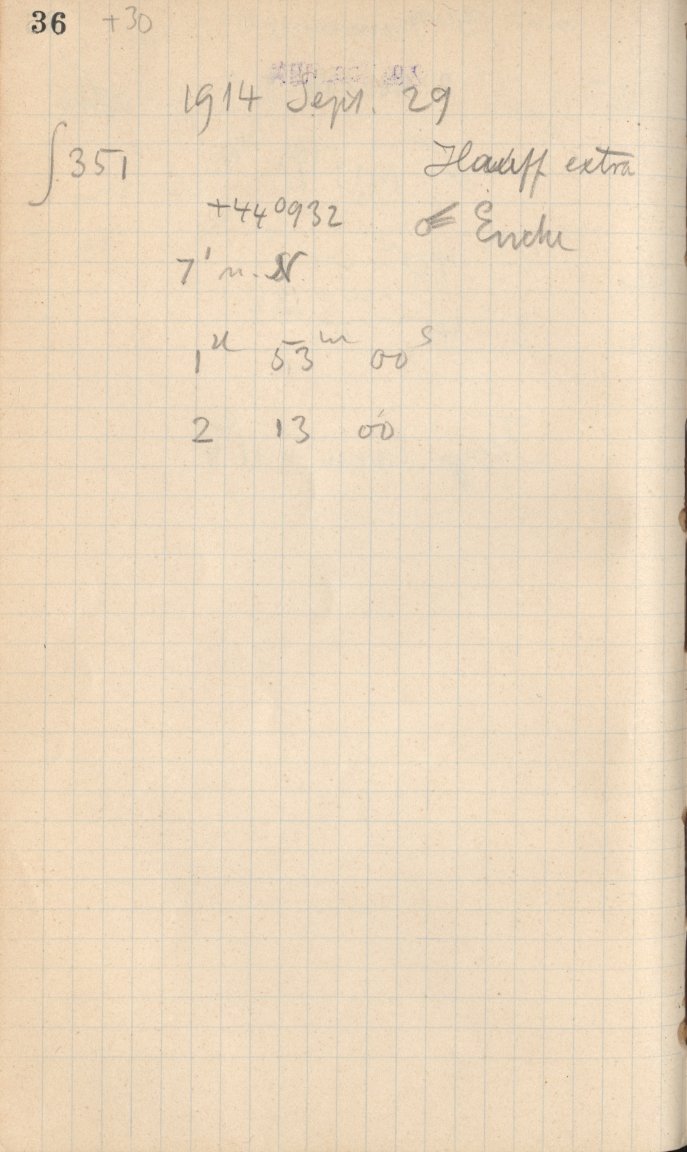 36 +30
1914 Sept. 29
∫ 351 Hauff extra
+44°932 Encke
7' n. N.
1ᵘ 53ᵐ 00ˢ
2 13 00